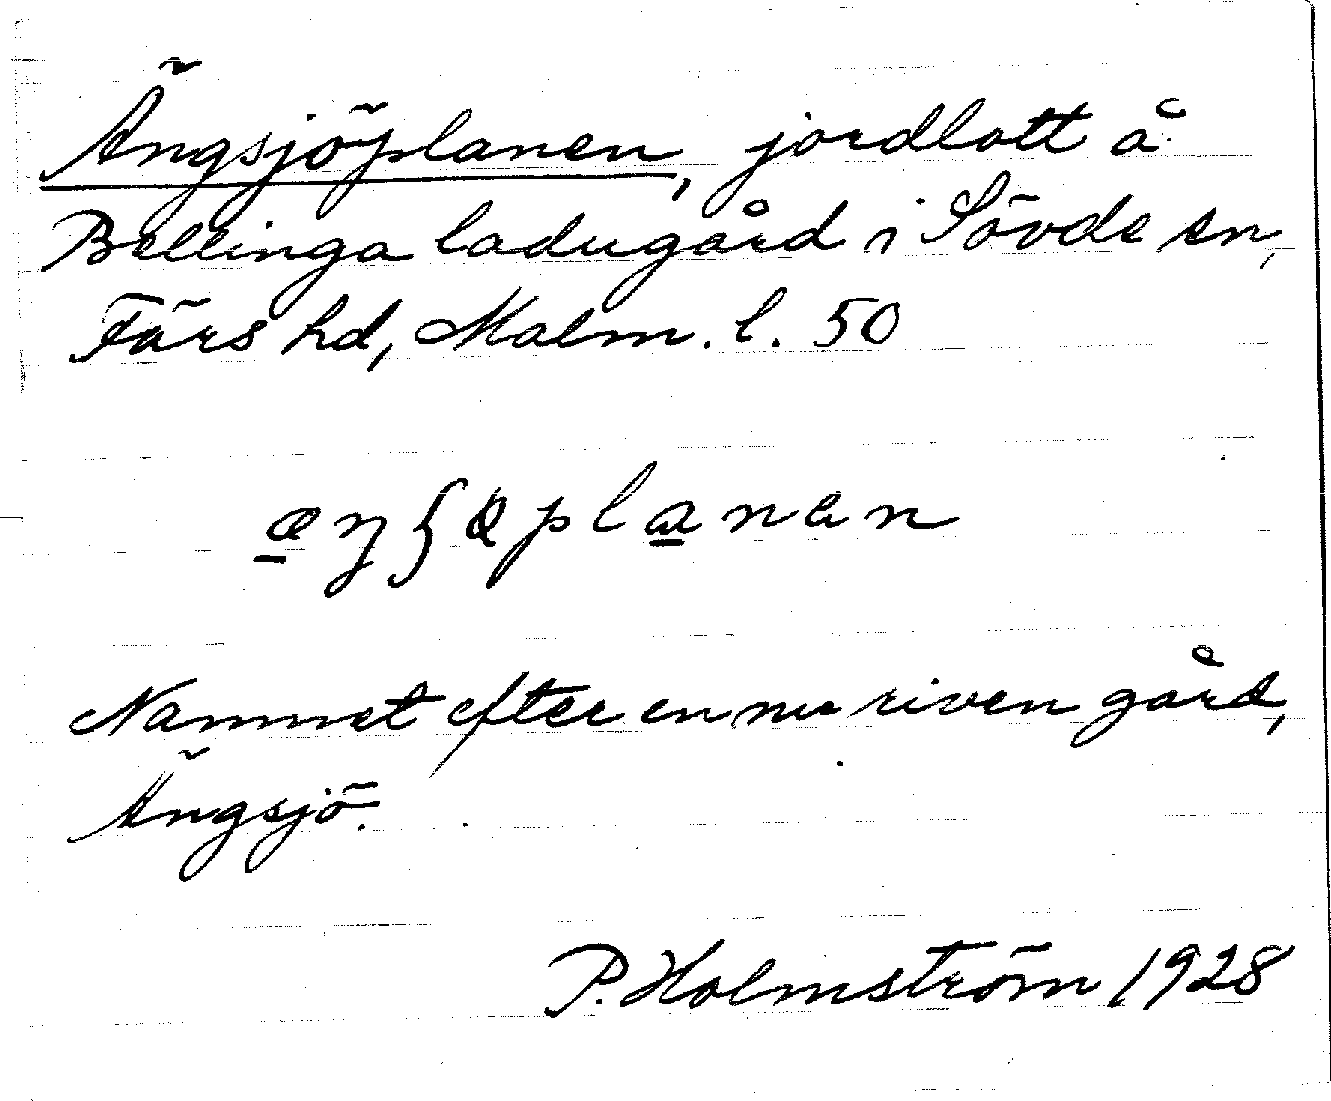 Ängsjöplanen, jordlott å
Bellinga ladugård i Sövde sn,
Färs hd, Malm. l. 50
æŋʃøplanen
Namnet efter en nu riven gård,
Ängsjö.
P. Holmström 1928